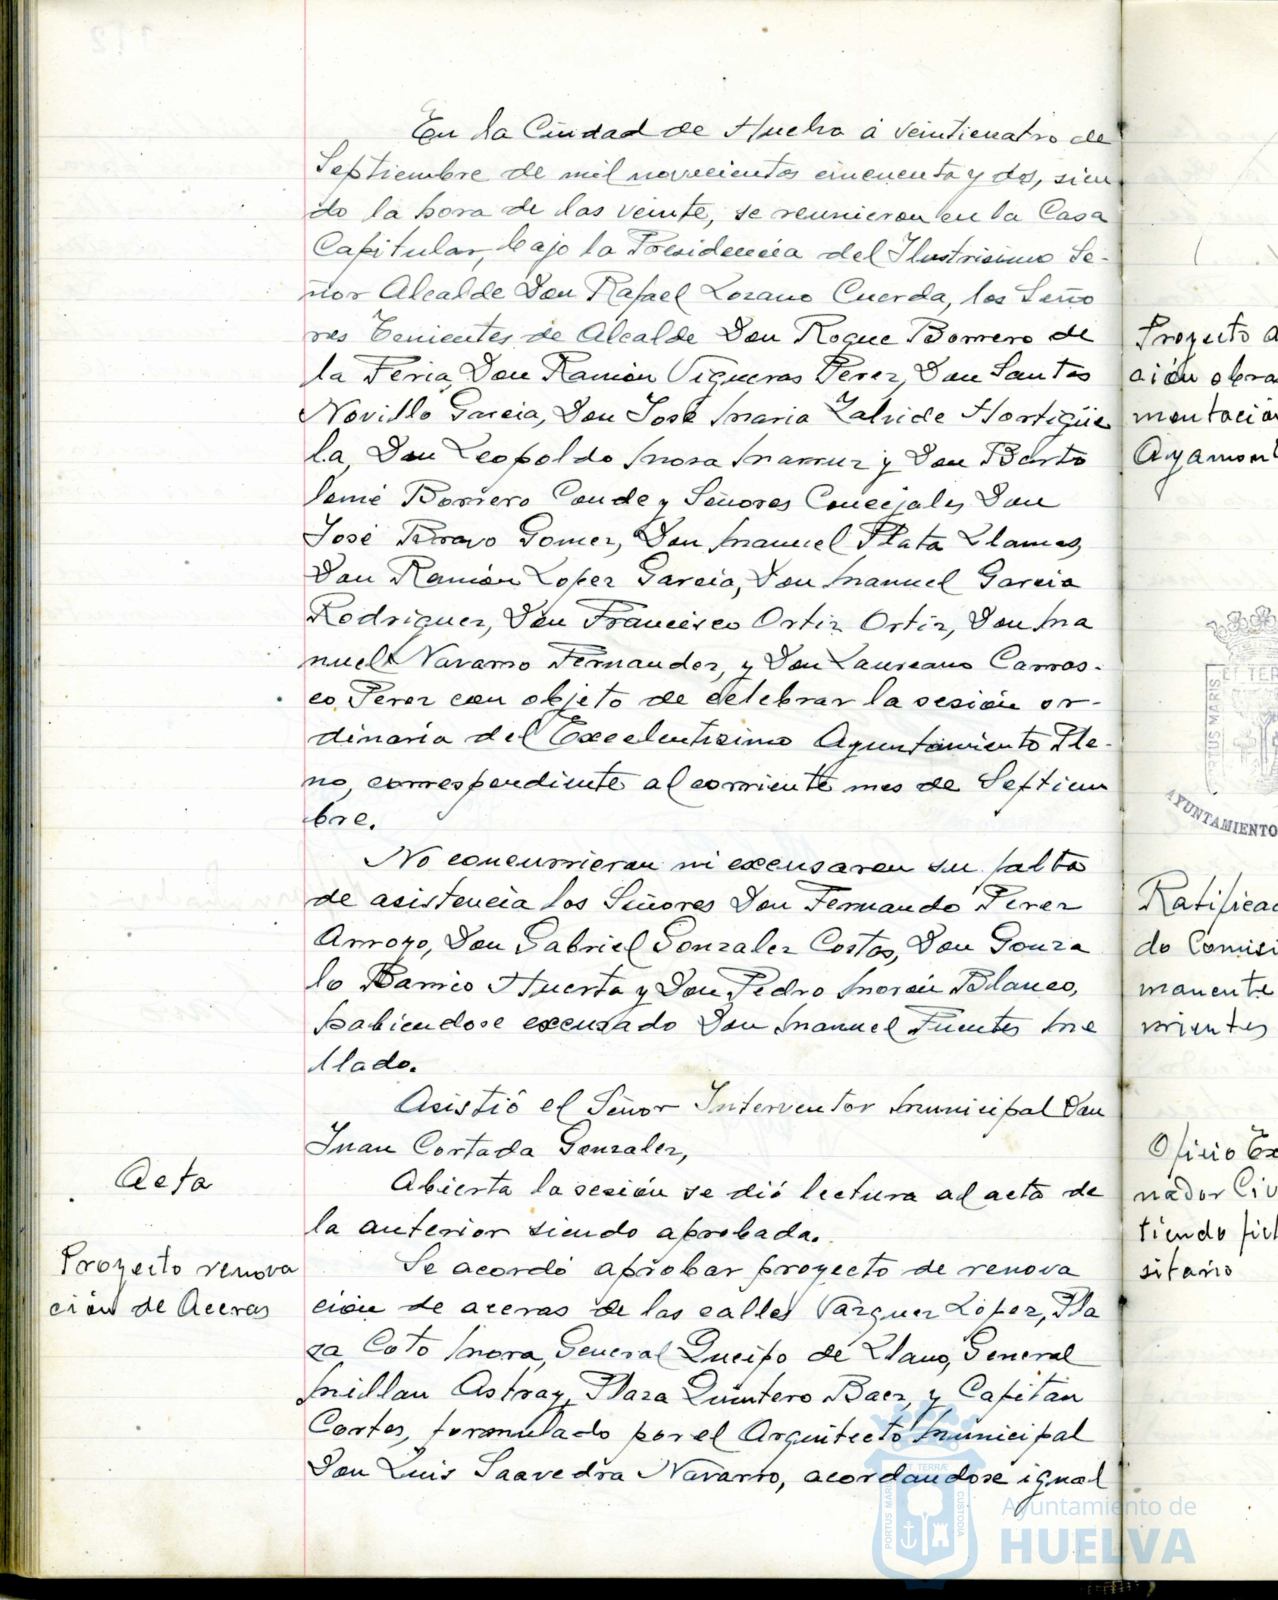 En la Ciudad de Huelva á veinticuatro de
Septiembre de mil novecientos cincuenta y dos, sien
do la hora de las veinte, se reunieron en la Casa
Capitular, bajo la Presidencia del Ilustrisimo Se-
ñor Alcalde Don Rafael Lozano Cuerda, los Seño
res Tenientes de Alcalde Don Roque Borrero de
la Feria, Don Ramón Vigueras Perez, Don Santos
Novillo Garcia, Don José Maria Zalvide Hortigüe
la, Don Leopoldo Mora Marruz y Don Barto
lomé Borrero Conde y Señores Concejales Don
José Bravo Gomez, Don Manuel Plata Llamas,
Don Ramón Lopez Garcia, Don Manuel Garcia
Rodriguez, Don Francisco Ortiz Ortiz, Don Ma
nuel Navarro Fernandez, y Don Laureano Carras-
co Perez con objeto de celebrar la sesión or-
dinaria del Excelentisimo Ayuntamiento Ple-
no, correspondiente al corriente mes de Septiem
bre.
No concurrieron ni excusaron su falta
de asistencia los Señores Don Fernando Perez
Arroyo, Don Gabriel Gonzalez Costas, Don Gonza
lo Barrio Huerta y Don Pedro Morón Blanco,
habiendose excusado Don Manuel Fuentes Me
llado.
Asistió el Señor Interventor Municipal Don
Juan Cortada Gonzalez,
Acta
Abierta la sesión se dió lectura al acta de
la anterior siendo aprobada.
Proyecto renova
ción de Aceras
Se acordó aprobar proyecto de renova
ción de aceras de las calles Vazquez Lopez, Pla
za Coto Mora, General Queipo de Llano, General
Millan Astray, Plaza Quintero Baez, y Capitan
Cortes, formulado por el Arquitecto Municipal
Don Luis Saavedra Navarro, acordandose igual
Proyecto a
ción obra
mentación
Ayamont
ET TER
PORTUS MARIS
AYUNTAMIENTO
Ratificac
do Comisi
manente
Oficio Ex
nador Civ
tiendo
sitario
PORTUS MARIS ET TERRÆ CUSTODIA
Ayuntamiento de
HUELVA